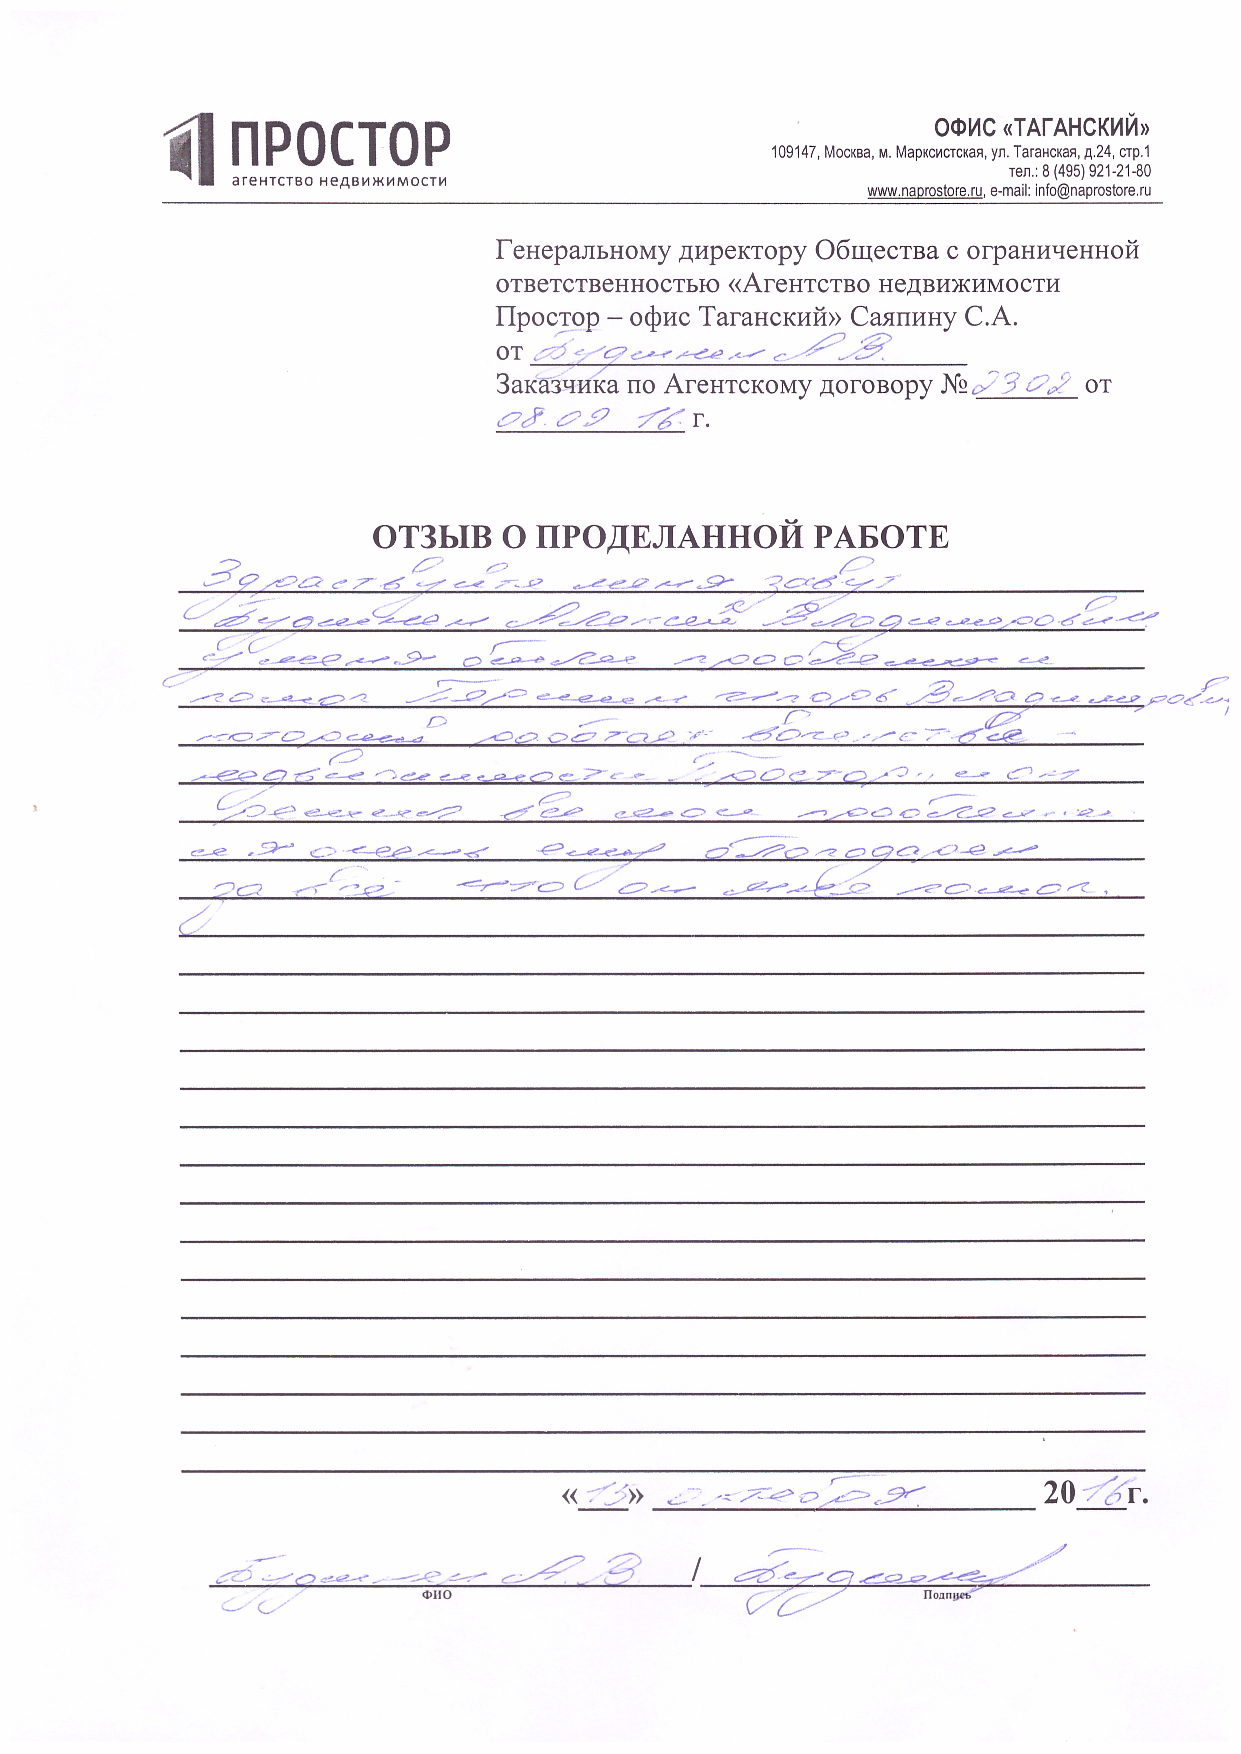 ПРОСТОР
агентство недвижимости
ОФИС «ТАГАНСКИЙ»
109147, Москва, м. Марксистская, ул. Таганская, д.24, стр.1
тел.: 8 (495) 921-21-80
www.naprostore.ru, e-mail: info@naprostore.ru
Генеральному директору Общества с ограниченной
ответственностью «Агентство недвижимости
Простор – офис Таганский» Саяпину С.А.
от А В.
Заказчика по Агентскому договору № 2302 от
08.09 16. г.
ОТЗЫВ О ПРОДЕЛАННОЙ РАБОТЕ
Здраствуйте меня завут
Алексей Владимирович
У меня была проблема и
помог Игорь Владимирови
который работает в
недвижимости Простор и он
решил все мои проблемы
и я очень ему благодарен
за всё что он мне помог.
«13» октебря. 2016г.
А.В. /
ФИО
Подпись